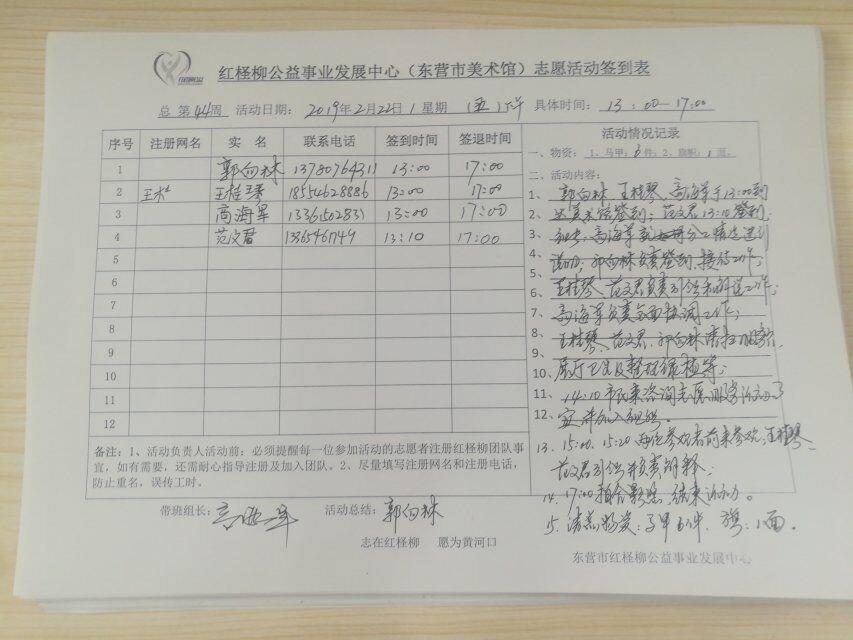 红柽柳公益事业发展中心（东营市美术馆）志愿活动签到表
总 第 44周 活动日期： 2019年2月22日 星期（五）下午 具体时间： 13：00—17：00
序号 注册网名 实 名 联系电话 签到时间 签退时间 活动情况记录
1 郭向林 13780764311 13:00 17:00
2 王桂琴 18554628886 13:00 17:00
3 高海军 1336502831 13:00 17:00
4 范文君 13:10 17:00
5
6
7
8
9
10
11
12
一、物资： 1、马甲：6件； 2、旗帜：1面。
二、活动内容：
1、郭向林 王桂琴 高海军于13:00到
2、达美术馆签到；范文君13:10签到；
3、高海军 分工情况进行
4、郭向林负责签到、接待工作；
5、王桂琴、范文君负责引领和解说工作；
6、
7、高海军负责全面协调工作；
8、王桂琴、范文君、郭向林清扫服务台、
9、展厅卫生及整理绿植等；
10、
11、14:10 市民来咨询志愿服务活动
12、并加入组织。
13、15:00、15:20 两位参观者前来参观，王桂琴、
范文君引领并负责解释；
14、17:00 拍合影照，结束活动。
15、清点物资：马甲6件，旗：1面。
备注：1、活动负责人活动前：必须提醒每一位参加活动的志愿者注册红柽柳团队事
宜，如有需要，还需耐心指导注册及加入团队。2、尽量填写注册网名和注册电话，
防止重名，误传工时。
带班组长：高海军 活动总结：郭向林
志在红柽柳 愿为黄河口
东营市红柽柳公益事业发展中心